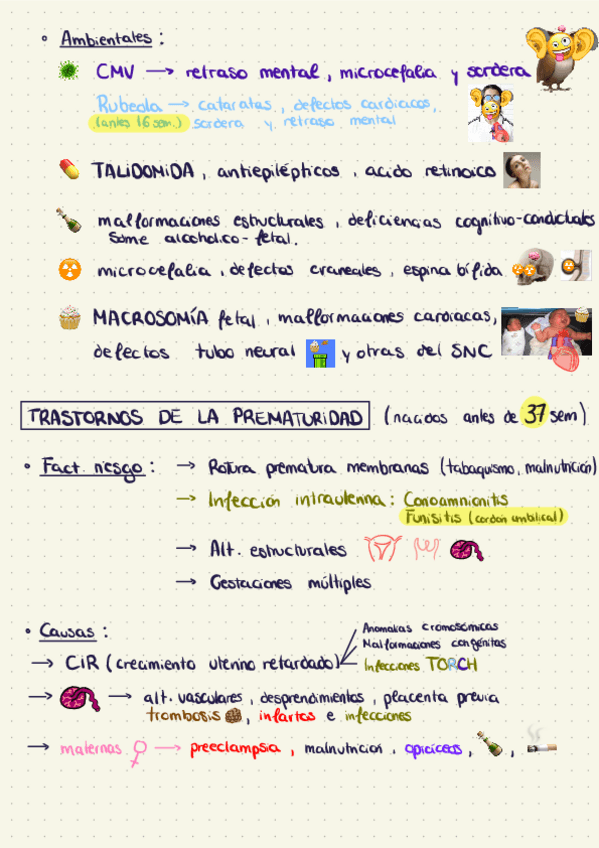 Ambientales:
CMV → retraso mental, microcefalia y sordera
Rubeola → cataratas, defectos cardiacos,
(antes 16 sem.) sordera y retraso mental
TALIDOMIDA, antiepilépticos, acido retinoico
malformaciones estructurales, deficiencias cognitivo-conductuales
Sdme alcoholico-fetal.
microcefalia, defectos craneales, espina bífida
MACROSOMÍA fetal, malformaciones cardiacas,
defectos tubo neural y otras del SNC
TRASTORNOS DE LA PREMATURIDAD (nacidos antes de 37 sem)
Fact. riesgo: → Rotura prematura membranas (tabaquismo, malnutrición)
→ Infección intrauterina: Corioamnionitis
Funisitis (cordón umbilical)
→ Alt. estructurales
→ Gestaciones múltiples
Causas:
Anomalias cromosómicas
Malformaciones congénitas
→ CIR (crecimiento uterino retardado) Infecciones TORCH
→ → alt. vasculares, desprendimientos, placenta previa
trombosis, infartos e infecciones
→ maternas → preeclampsia, malnutrición, opiáceos, ,